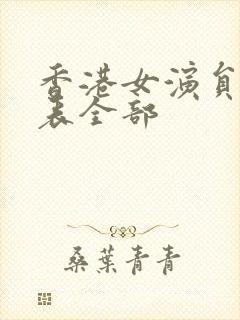 香港女演員
表全部
桑葉青青